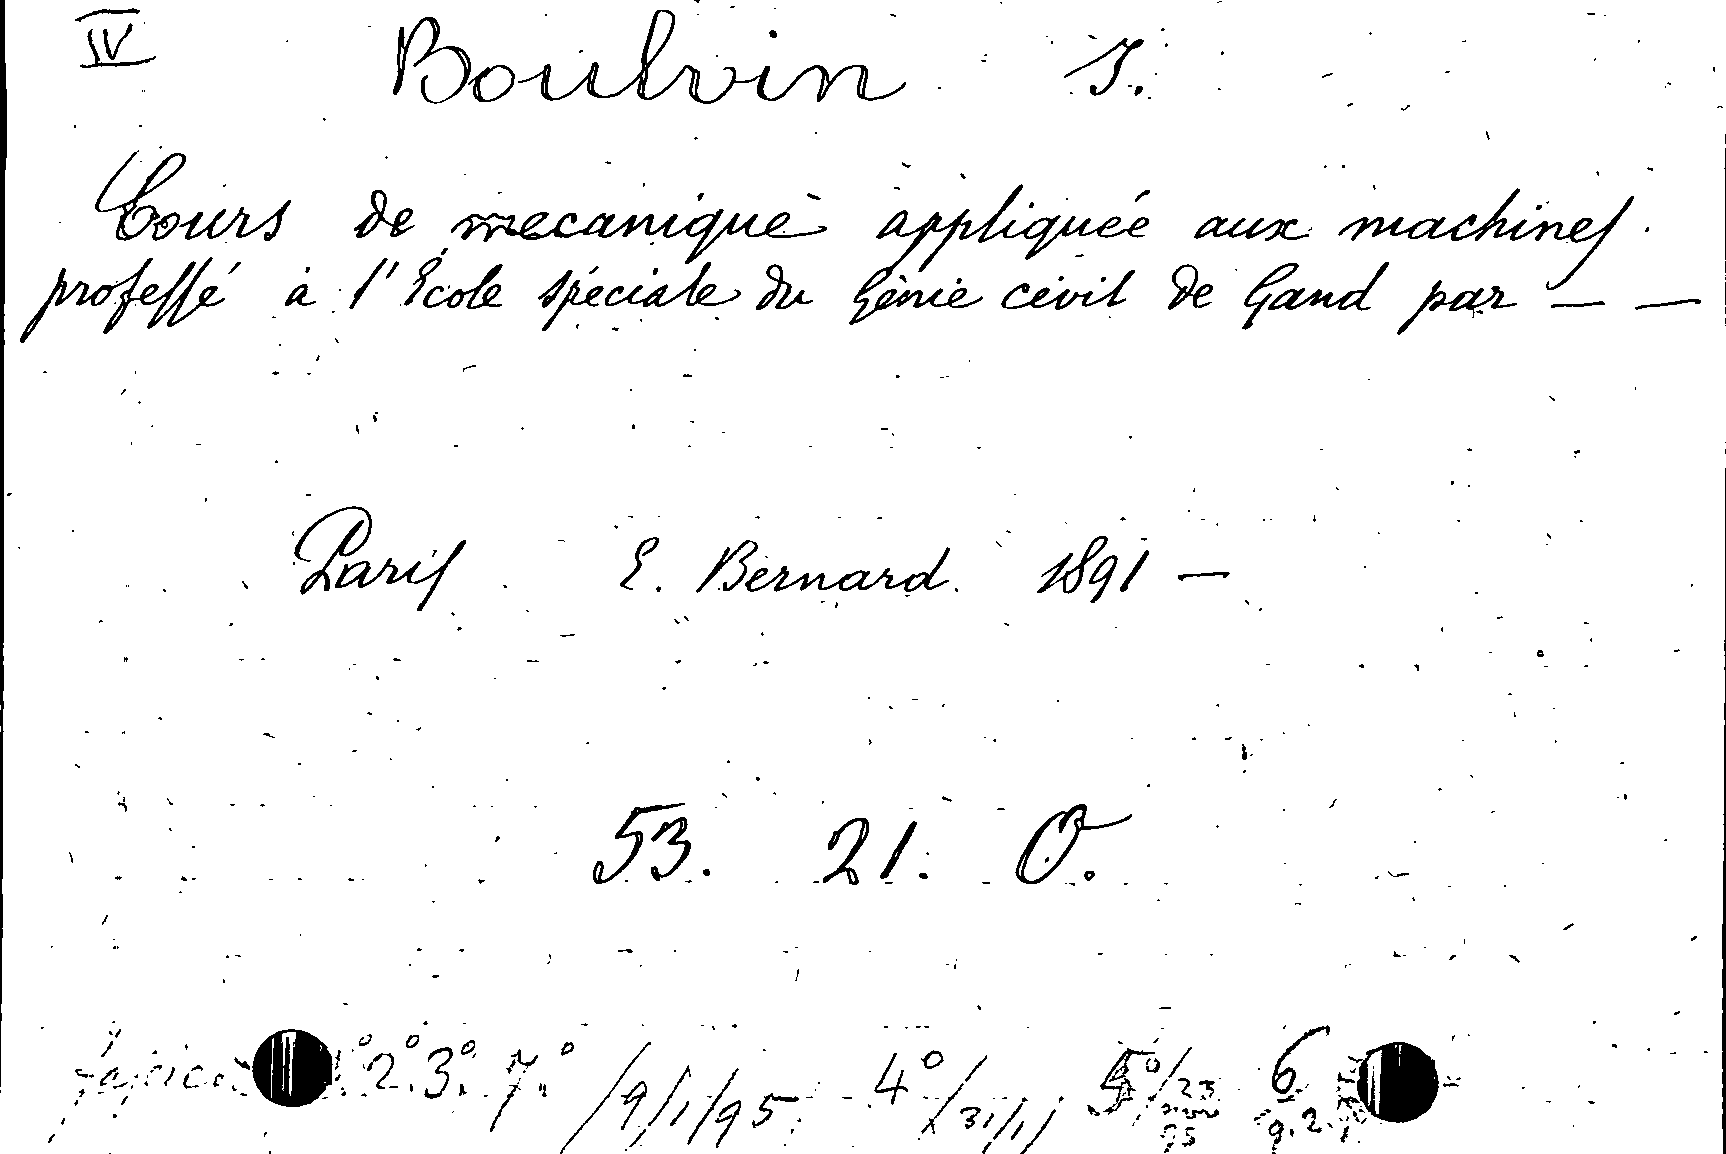 IV Boulvin J.
Cours de mecanique appliquée aux machines
professé à l'École spéciale du Génie civil de Gand par — —
Paris E. Bernard. 1891 —
53. 21. O.
1° 2° 3° 7° /9/1/95 4° /31/1/ 5°/23 nov 95 6 9.2.